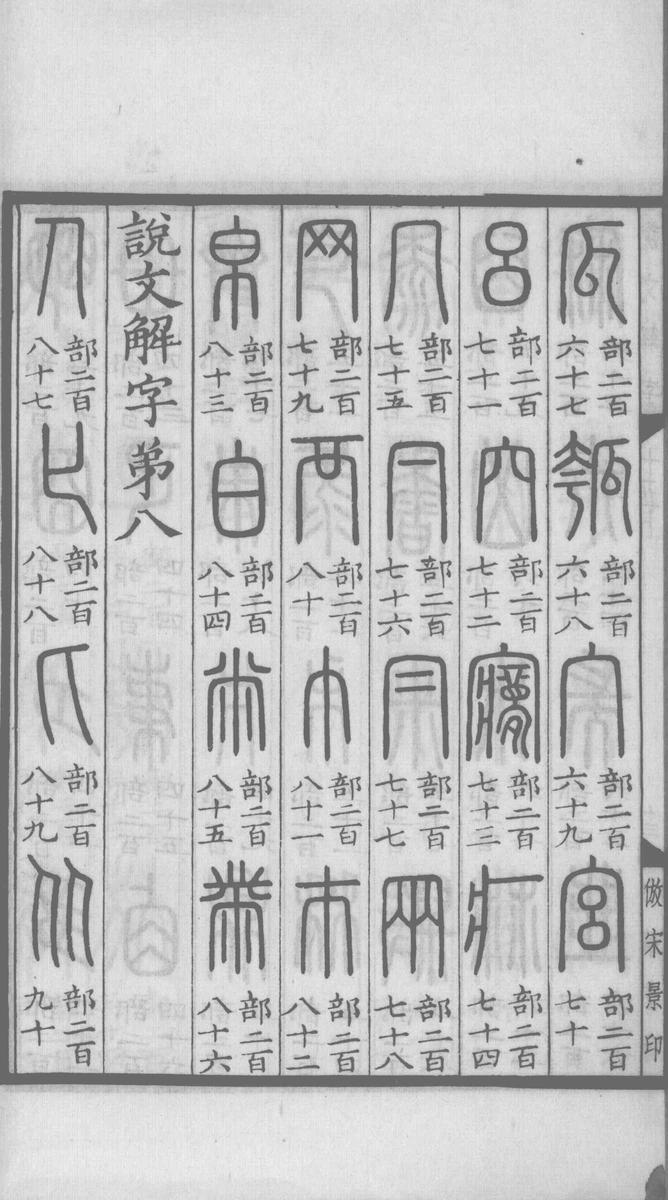 倣宋景印
瓜部二百六十七 瓠部二百六十八 宀部二百六十九 宮部二百七十
呂部二百七十一 穴部二百七十二 㝱部二百七十三 疒部二百七十四
冖部二百七十五 𠔼部二百七十六 冃部二百七十七 㒳部二百七十八
网部二百七十九 襾部二百八十 巾部二百八十一 巿部二百八十二
帛部二百八十三 白部二百八十四 㡀部二百八十五 黹部二百八十六
說文解字弟八
人部二百八十七 𠤎部二百八十八 匕部二百八十九 从部二百九十